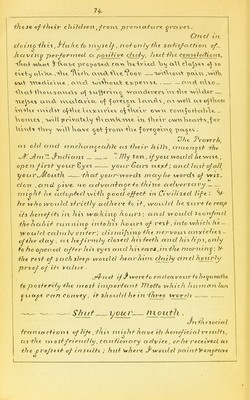 74.
those of their children, from premature graves.
And in
doing this, I take to myself, not only the satisfaction of
having performed a positive duty, but the consolation,
that what I have proposed can be tried by all classes of so-
ciety alike, the Rich and the Poor — without pain, with-
out medicine, and without expense — and also,
that thousands of suffering wanderers in the wilder-
nesses and malaria of foreign lands, as well as of those
in the midst of the luxuries of their own comfortable
homes, will privately thank me in their own hearts, for
hints they will have got from the foregoing pages.
The Proverb,
as old and unchangeable as their hills, amongst the
N. Amn Indians — "My son, if you would be wise,
open first your Eyes — your Ears next; and last of all
your Mouth — that your words may be words of wis-
dom, and give no advantage to thine adversary —"
might be adopted with good effect in Civilized life: &
he who would strictly adhere to it, would be sure to reap
its benefits in his waking hours; and would soon find
the habit running into his hours of rest, into which he
would calmly enter; dismissing the nervous anxieties
of the day, as he firmly closed his teeth and his lips, only
to be opened after his eyes and his ears, in the morning; &
the rest of such sleep would bear him daily and hourly
proof of its value.
And if I were to endeavour to bequeathe
to posterity the most important Motto which human lan-
guage can convey, it should be in three words —
Shut — your — mouth.
In the social
transactions of life, this might have its beneficial results,
as the most friendly, cautionary advice, or be received as
the grossest of insults; but where I would paint & engrave